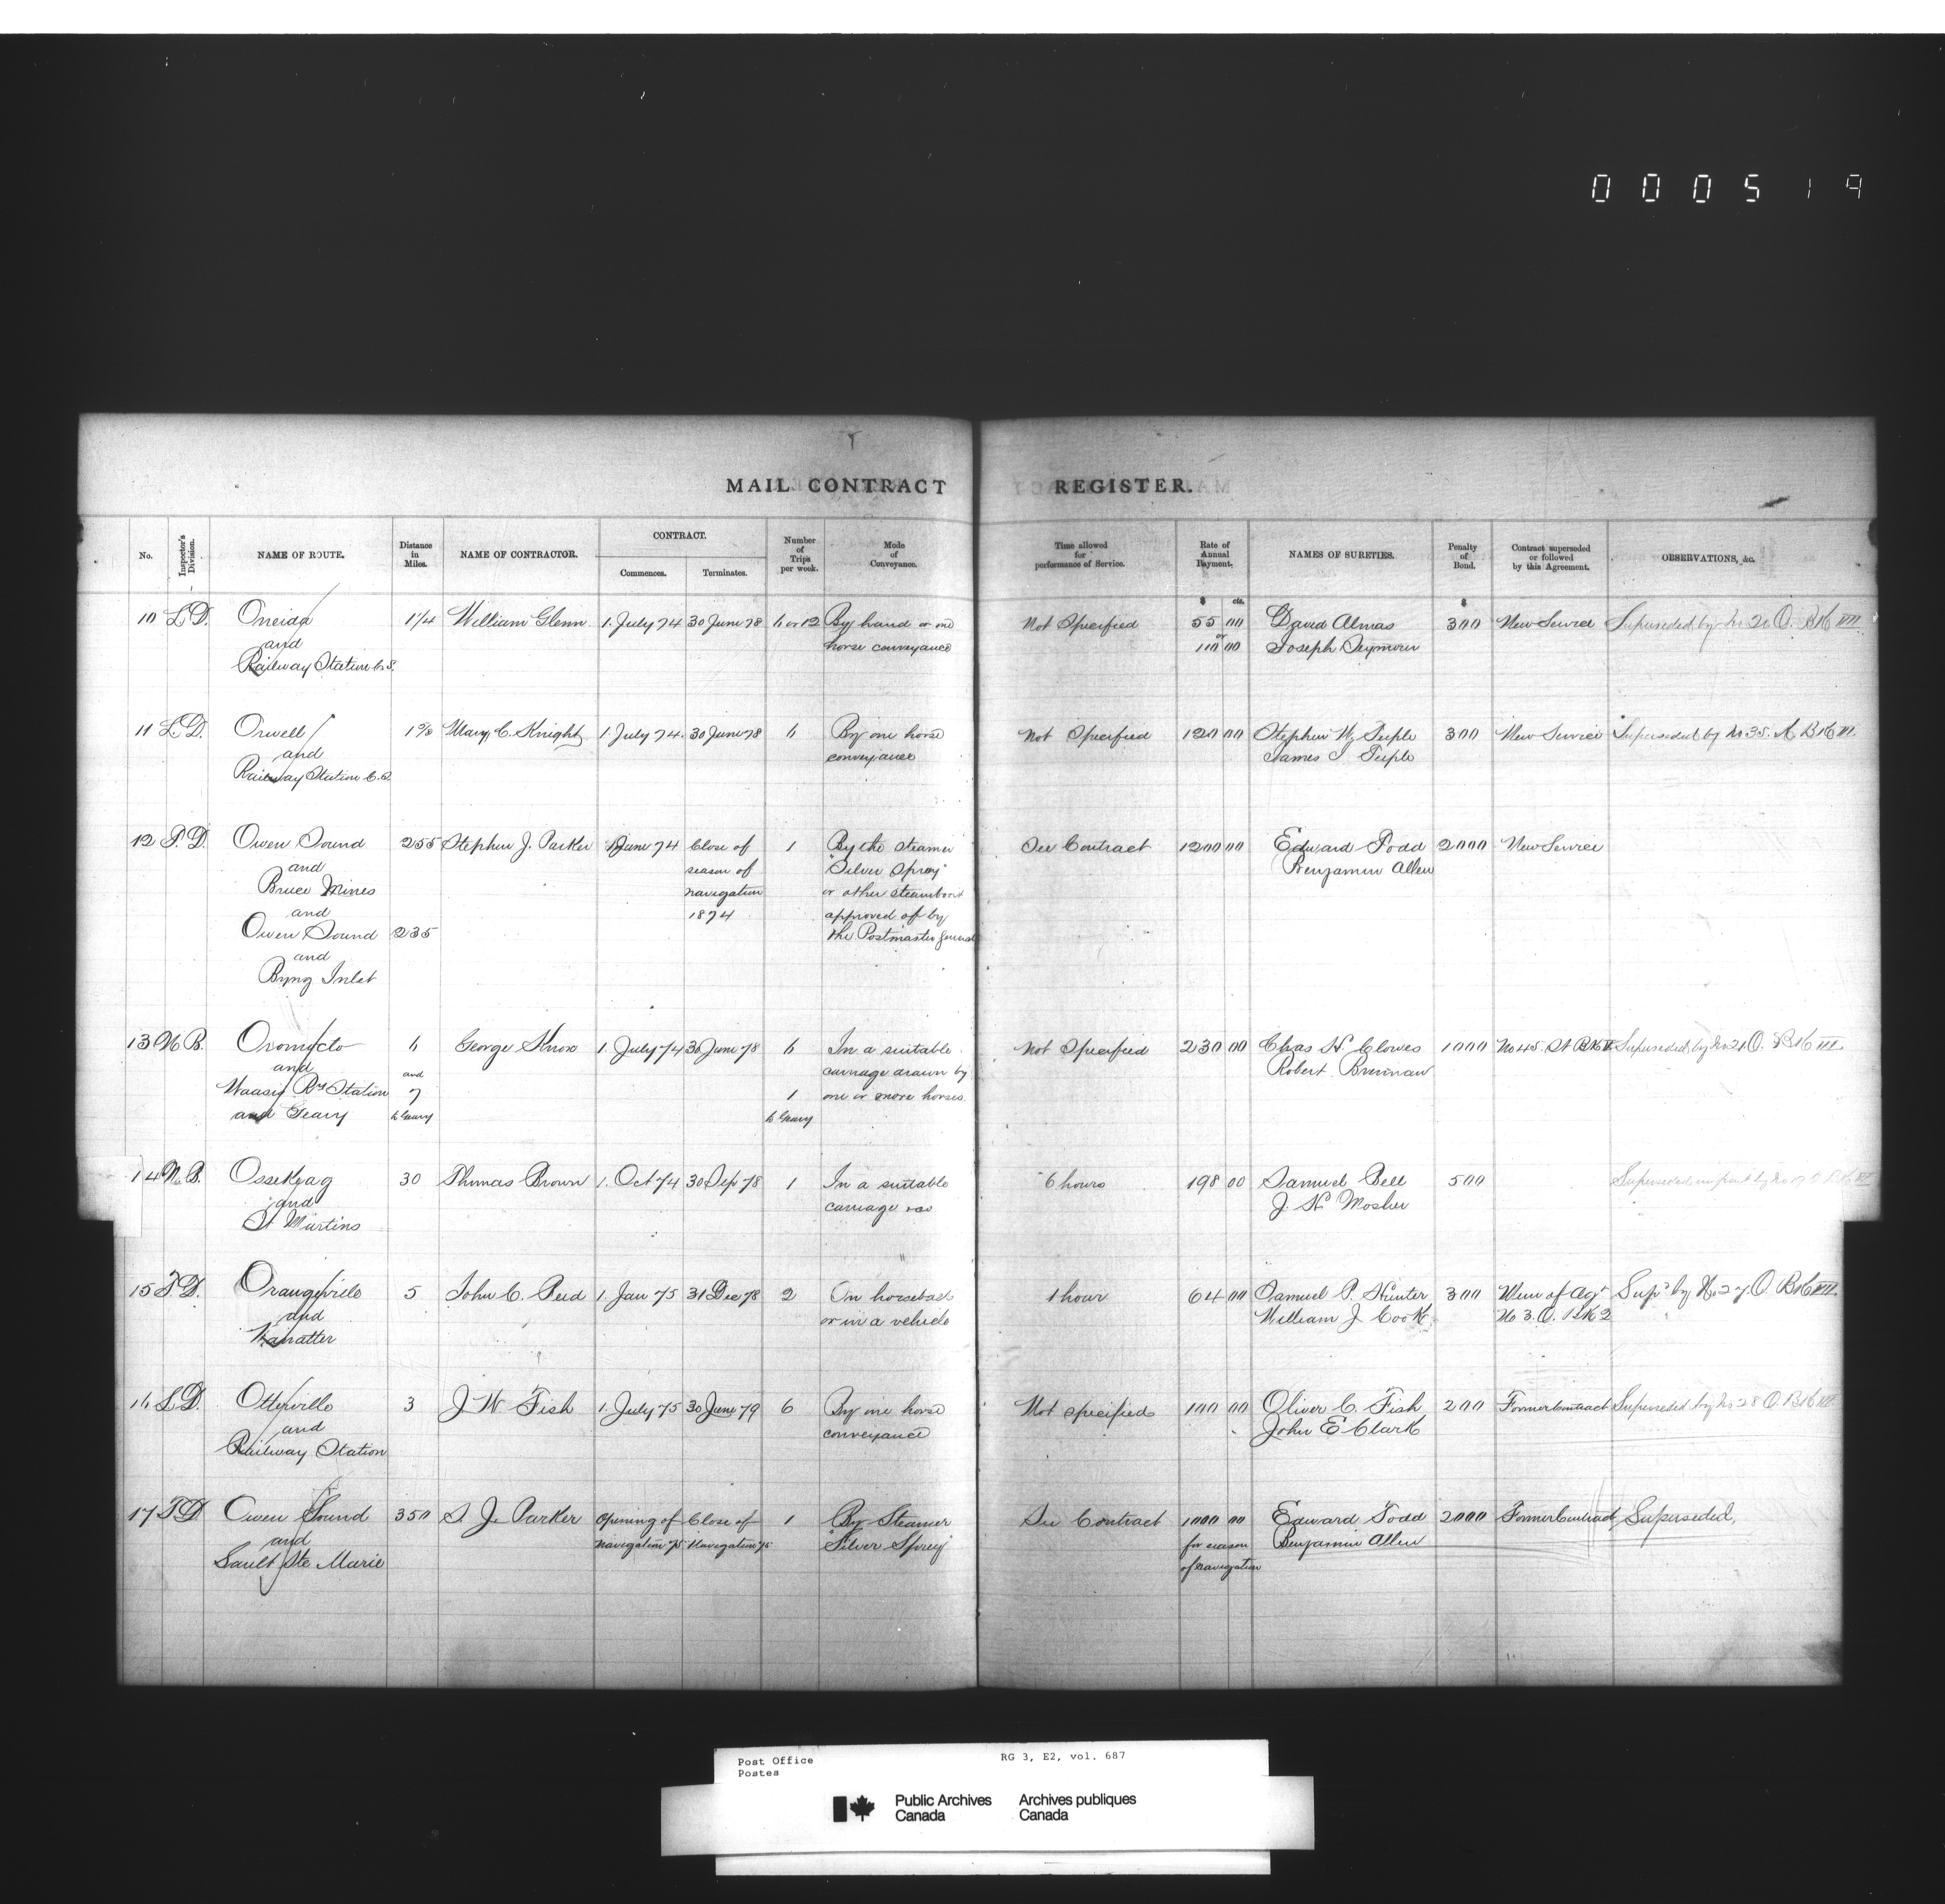 000519
MAIL CONTRACT REGISTER.
No. Inspector's Division. NAME OF ROUTE. Distance in Miles. NAME OF CONTRACTOR. CONTRACT. Commences. Terminates. Number of Trips per week. Mode of Conveyance. Time allowed for performance of Service. Rate of Annual Payment. NAMES OF SURETIES. Penalty of Bond. Contract superseded or followed by this Agreement. OBSERVATIONS, &c.
$ cts. $
10 L D. Oneida 1 1/4 William Glenn 1. July 74 30 June 78 6 or 12 By hand or one Not Specified 55 00 David Almas 300 New Service Superseded by No 20 O. BK VII
and horse conveyance or 110 00 Joseph Seymour
Railway Station C. S.
11 L D. Orwell Mary C. Knight 1. July 74. 30 June 78 6 By one horse Not Specified 120 00 Stephen W. Teeple 300 New Service Superseded by No 35. A BK VI
and conveyance James I Teeple
Railway Station C. S.
12 T. D. Owen Sound 255 Stephen J. Parker 1 June 74 Close of 1 By the steamer See Contract 1200 00 Edward Todd 2000 New Service
and season of "Silver Spray" Benjamin Allen
Bruce Mines navigation or other steamboat
and 1874 approved of by
Owen Sound 235 the Postmaster General
and
Byng Inlet
13 N B. Oromocto 6 George Knox 1. July 74 30 June 78 6 In a suitable Not Specified 230 00 Chas H. Clowes 1000 No 45. St BK V Superseded by No 21 O. BK III
and and carriage drawn by Robert Brennan
Waasis Ry Station 7 1 one or more horses.
and Geary to Geary to Geary
14 N. B. Ossekeag 30 Thomas Brown 1. Oct 74 30 Sep 78 1 In a suitable 6 hours 198 00 Samuel Bell 500 Superseded in part by No
and carriage J. H. Mosher
St Martins
15 T D. Orangeville 5 John C. Reid 1. Jan 75 31 Dec 78 2 On horseback 1 hour 64 00 Samuel P. Hunter 300 of Agt Supd by No 27. O. BK VII.
and or in a vehicle William J Cook No 3. O. BK 2
Kanatter
16 L D. Otterville 3 J. W Fish 1. July 75 30 June 79 6 By one horse Not specified 100 00 Oliver C. Fish 200 Former Contract Superseded by No 28 O BK VII
and conveyance John E Clark
Railway Station
17 T D Owen Sound 350 S J. Parker Opening of Close of 1 By Steamer See Contract 1000 00 Edward Todd 2000 Former Contract Superseded.
and navigation 75 Navigation 75 "Silver Spray" for season Benjamin Allen
Sault Ste Marie of navigation
Post Office RG 3, E2, vol. 687
Postes
Public Archives Archives publiques
Canada Canada